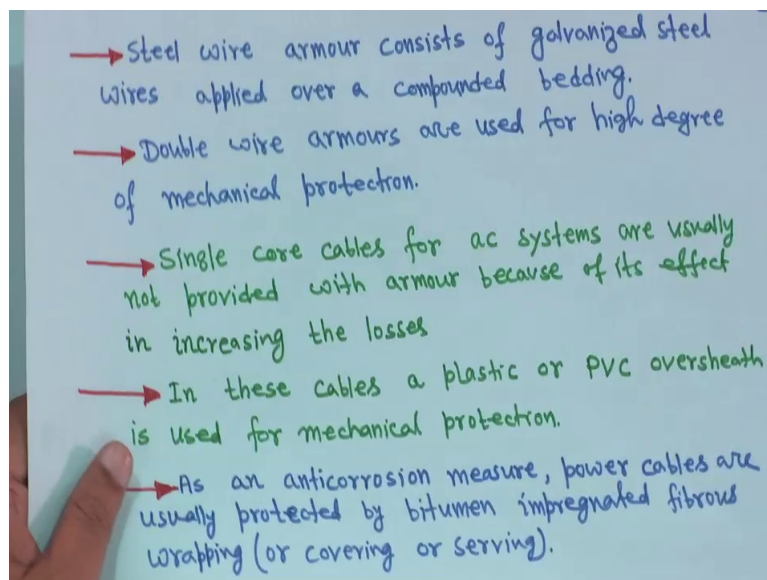 → Steel wire armour consists of galvanized steel
wires applied over a compounded bedding.
→ Double wire armours are used for high degree
of mechanical protection.
→ Single core cables for ac systems are usually
not provided with armour because of its effect
in increasing the losses
→ In these cables a plastic or PVC oversheath
is used for mechanical protection.
→ As an anticorrosion measure, power cables are
usually protected by bitumen impregnated fibrous
wrapping (or covering or serving).